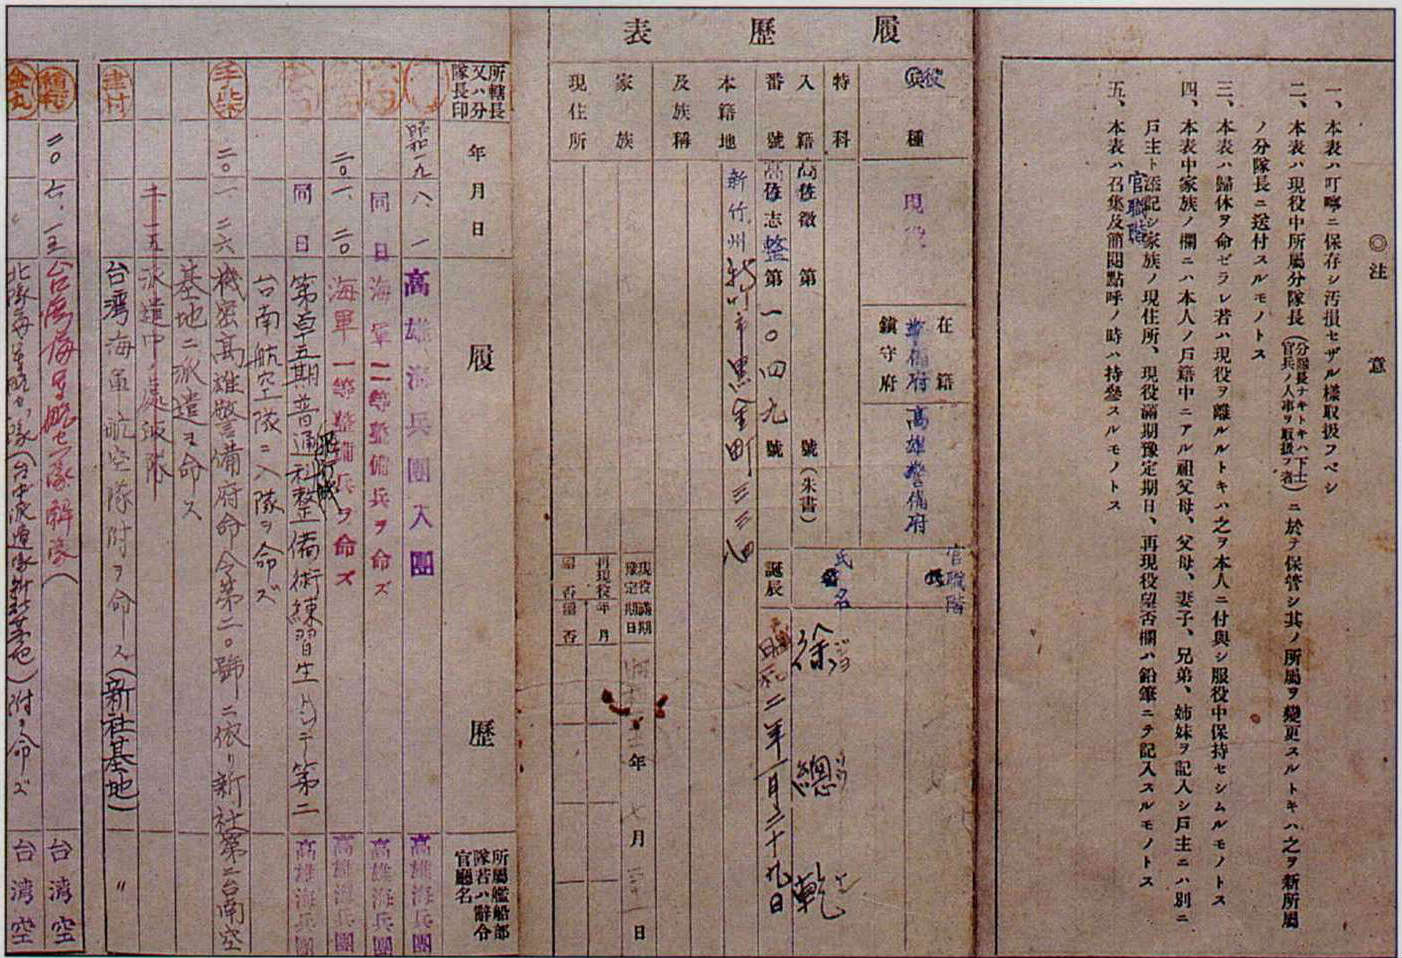 ◎注意
一、本表ハ叮嚀ニ保存シ汚損セザル樣取扱フベシ
二、本表ハ現役中所屬分隊長(分隊長ナキトキハ下士官兵ノ人事ヲ取扱フ者)ニ於テ保管シ其ノ所屬ヲ變更スルトキハ之ヲ新所屬
ノ分隊長ニ送付スルモノトス
三、本表ハ歸休ヲ命ゼラレ若ハ現役ヲ離ルルトキハ之ヲ本人ニ付與シ服役中保持セシムルモノトス
四、本表中家族ノ欄ニハ本人ノ戶籍中ニアル祖父母、父母、妻子、兄弟、姉妹ヲ記入シ戶主ニハ別ニ
戶主ト添記シ家族ノ現住所、現役滿期豫定期日、再現役望否欄ハ鉛筆ニテ記入スルモノトス
官職階
五、本表ハ召集及簡閱點呼ノ時ハ持參スルモノトス
履歷表
役種
現役
在籍鎭守府
警備府
高雄警備府
官職階
特科
氏名
徐總乾
入籍番號
高徴第號(朱書)
高志整第一〇四九號
誕辰
昭和二年一月二十九日
本籍地及族稱
新竹州新竹市黑金町三三四
家族
現役滿期豫定期日
年七月日
再現役年月
現住所
所轄長又ハ分隊長印
年月日
履歷
所屬艦船部隊若ハ辭令官廳名
昭一九八一
高雄海兵團入團
高雄海兵團
同日
海軍二等整備兵ヲ命ズ
高雄海兵團
二〇、一、二〇
海軍一等整備兵ヲ命ズ
高雄海兵團
同日
飛行機
普通科整備術練習生トシテ第二
高雄海兵團
台南航空隊ニ入隊ヲ命ズ
二〇、一、二六
機密高雄警備府命令第二〇號ニ依リ新社
第二台南空
基地ニ派遣ヲ命ズ
派遣中
台湾海軍航空隊附ヲ命ズ(新社基地)
〃
二〇、六、一五
台湾空
附ヲ命ズ
台湾空